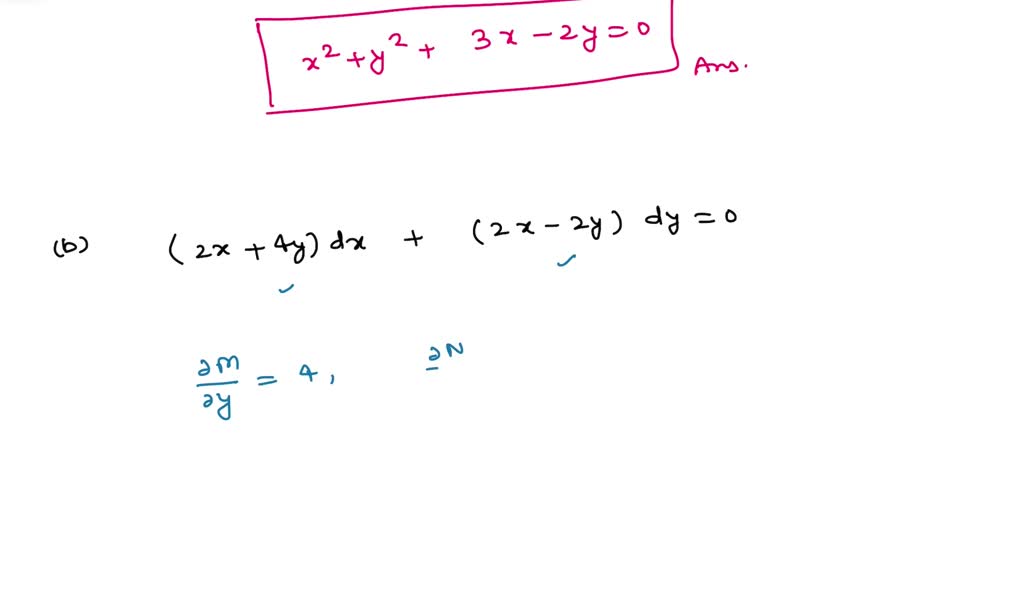 x² + y² + 3x - 2y = 0
Ans.
(b) (2x + 4y) dx + (2x - 2y) dy = 0
∂M/∂y = 4, ∂N